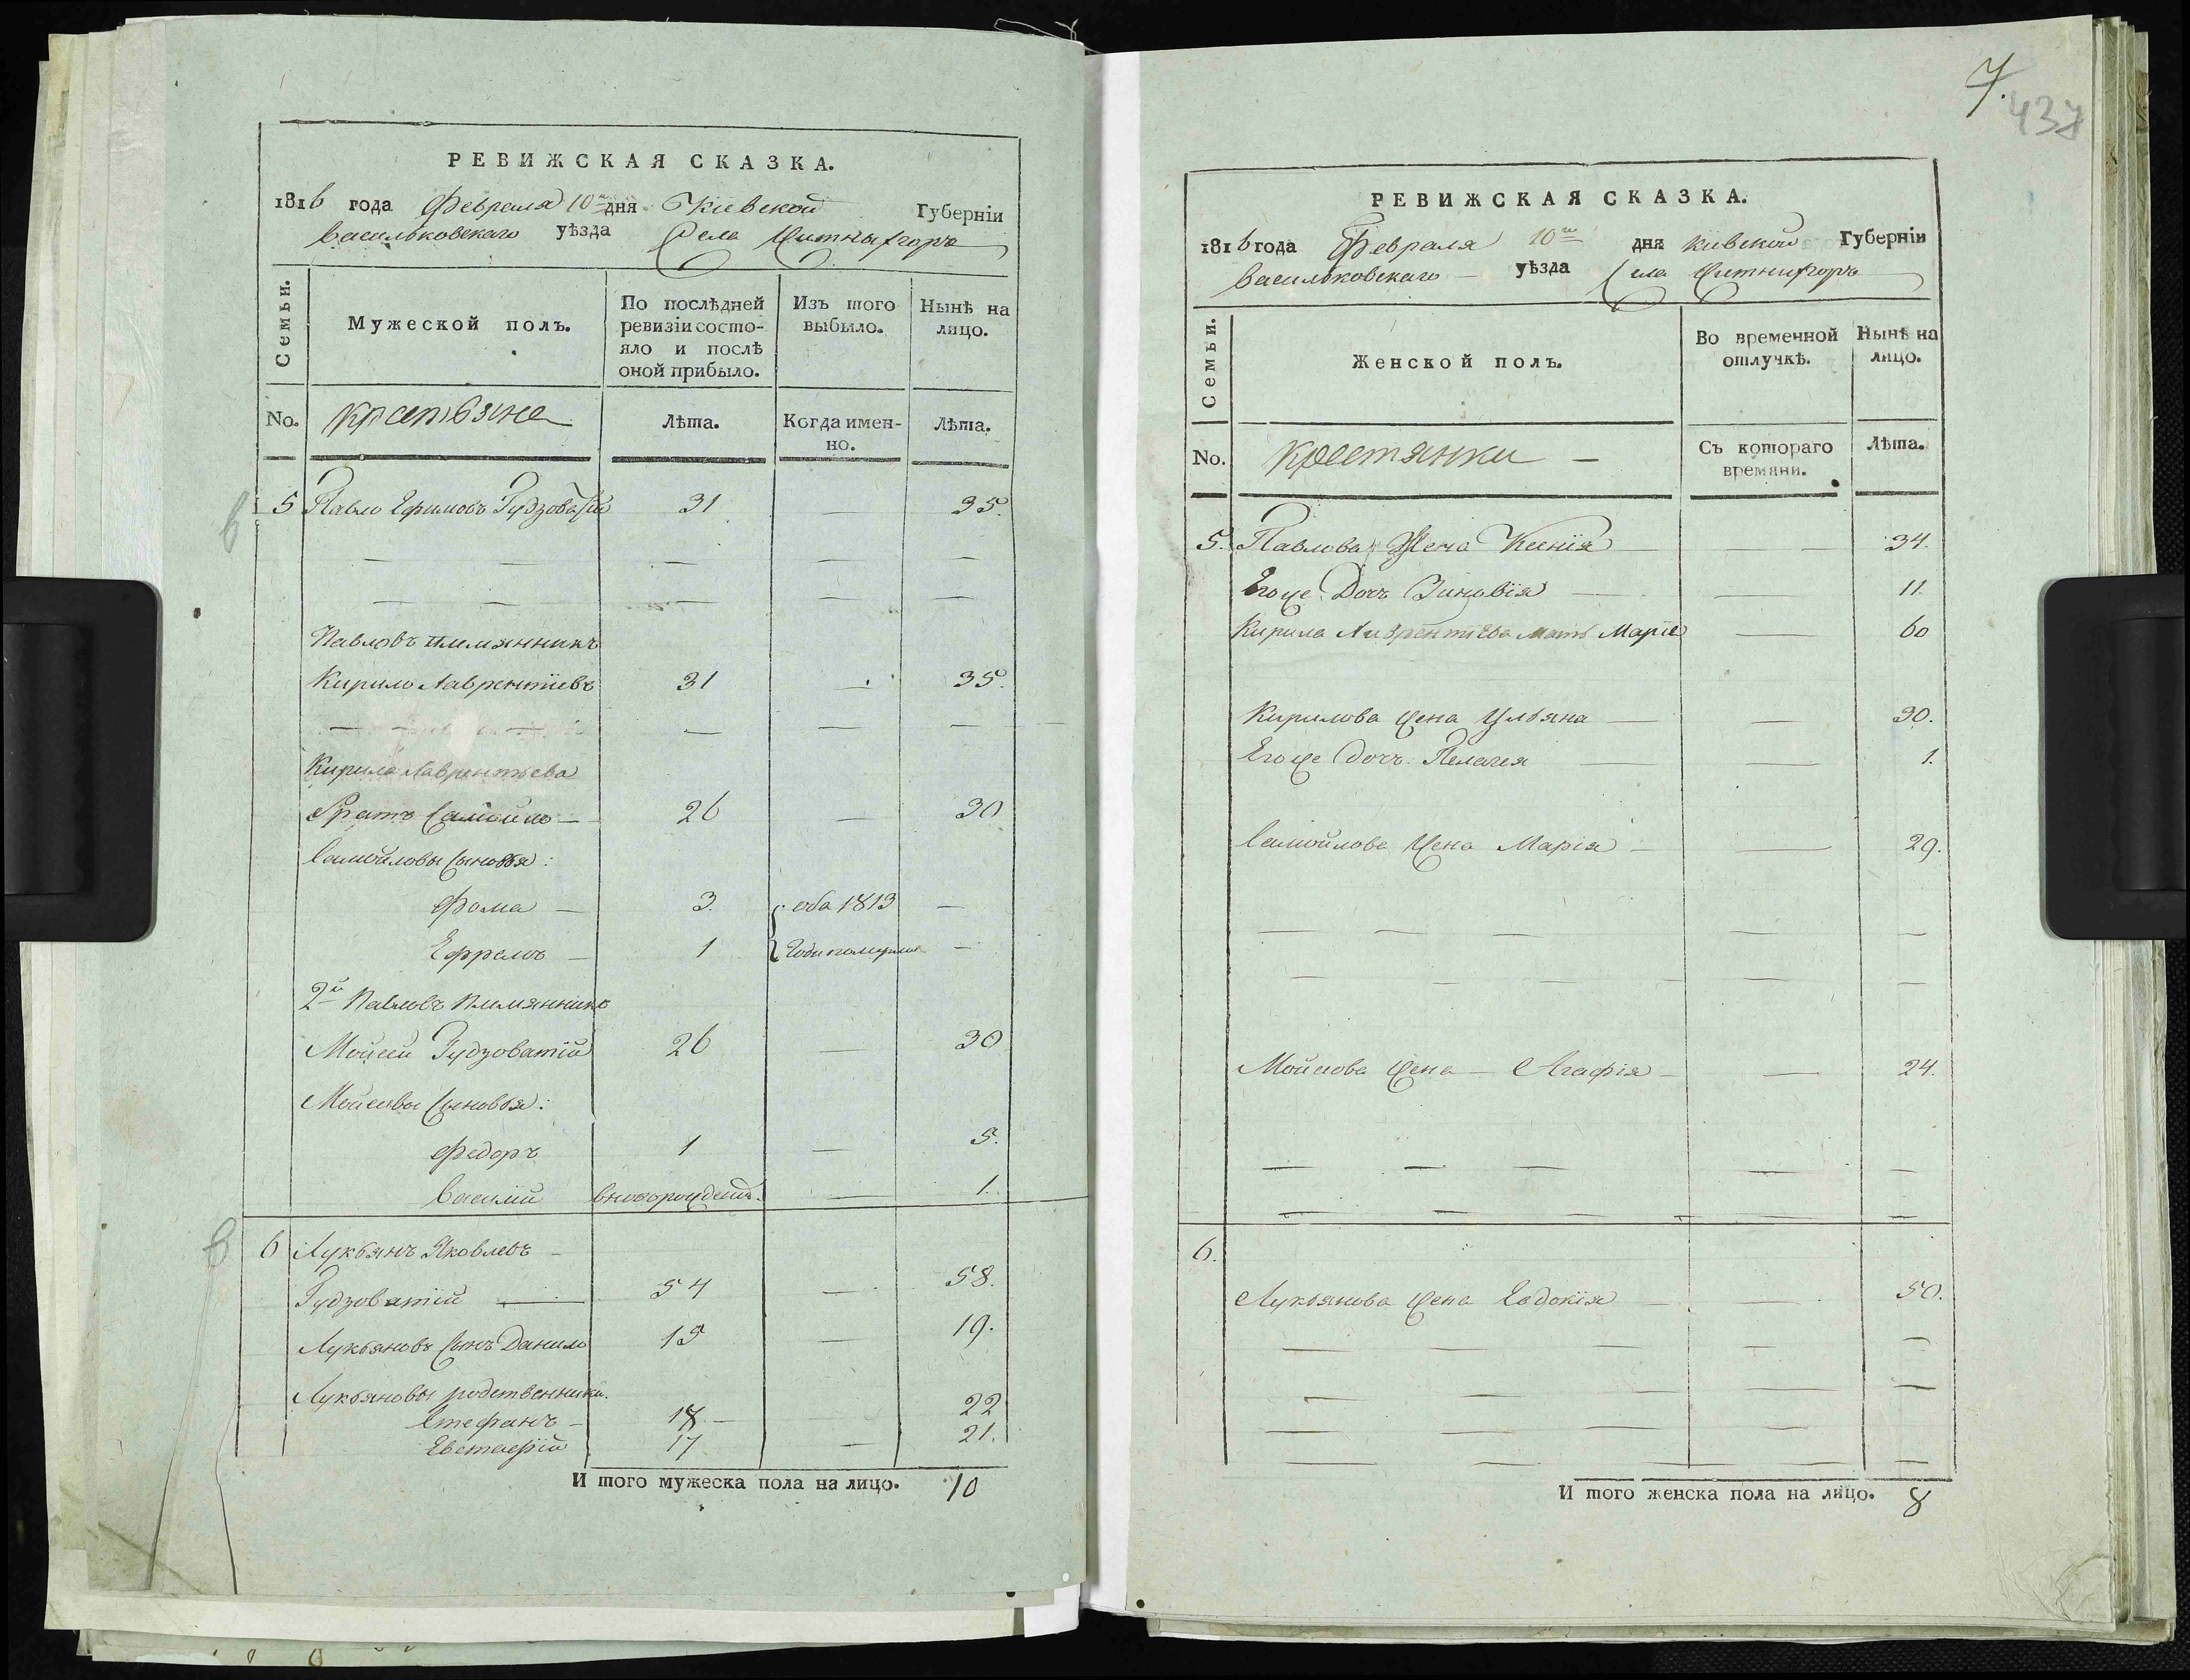 РЕВИЖСКАЯ СКАЗКА.
1816 года Февраля 10го дня Киевской Губерніи
Васильковскаго уѣзда Села
Семьи.
Мужеской полъ.
По послѣдней ревизіи состо-
яло и послѣ
оной прибыло.
Изъ того
выбыло.
Нынѣ на
лицо.
No. Крестьяне Лѣта. Когда имен-
но. Лѣта.
5 Павло Ефимовъ Гудзоватій 31 — 35.
Павловъ племянникъ
Кирило Лаврентіевъ 31 — 35.
Кирила Лаврентьева
Братъ Самойло — 26 — 30
Самойловы Сыновья:
Фома — 3. оба 1813 —
Ефремъ — 1 Года померли —
2й Павловъ Племянникъ
Мойсей Гудзоватій 26 — 30
Мойсеевы Сыновья:
Федоръ 1 — 5.
Василій вноворожденъ. — 1.
6 Лукьянъ Яковлевъ —
Гудзоватій — 54 — 58.
Лукьяновъ Сынъ Данило 15 — 19.
Лукьяновы родственники.
Стефанъ — 18 — 22
Евстафій 17 — 21.
И того мужеска пола на лицо. 10
7.
437
РЕВИЖСКАЯ СКАЗКА.
1816 года Февраля 10го дня Киевской Губерніи
Васильковскаго — уѣзда Села
Семьи.
Женской полъ.
Во временной
отлучкѣ.
Нынѣ на
лицо.
No. Крестянки — Съ котораго
времяни. Лѣта.
5. Павлова Жена Ксенія — 34.
Егоже Дочь Зиновія — 11.
Кирила Лаврентіева мать Марія — 60
Кирилова жена Ульяна — 30.
Егоже Дочь Пелагея — 1.
Самойлова Жена Марія — 29.
Мойсеова жена — Агафія — 24.
6.
Лукьянова жена Евдокія — 50.
И того женска пола на лицо. 8